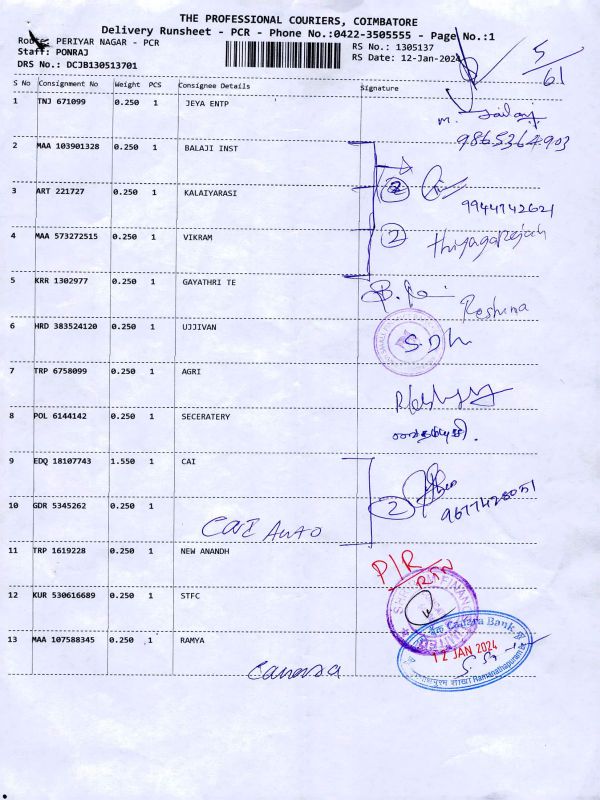 THE PROFESSIONAL COURIERS, COIMBATORE
Delivery Runsheet - PCR - Phone No.:0422-3505555 - Page No.:1
Route: PERIYAR NAGAR - PCR
RS No.: 1305137
Staff: PONRAJ
RS Date: 12-Jan-2024
DRS No.: DCJB130513701
5/61
S No Consignment No Weight PCS Consignee Details Signature
1 TNJ 671099 0.250 1 JEYA ENTP
9865364903
2 MAA 103901328 0.250 1 BALAJI INST
3 ART 221727 0.250 1 KALAIYARASI 2
9944142621
4 MAA 573272515 0.250 1 VIKRAM 2 thiyagarajah
5 KRR 1302977 0.250 1 GAYATHRI TE
Reshina
6 HRD 383524120 0.250 1 UJJIVAN
7 TRP 6758099 0.250 1 AGRI
8 POL 6144142 0.250 1 SECERATERY
9 EDQ 18107743 1.550 1 CAI
10 GDR 5345262 0.250 1 2
CAI AUTO
11 TRP 1619228 0.250 1 NEW ANANDH P/R
RTN
12 KUR 530616689 0.250 1 STFC
13 MAA 107588345 0.250 1 RAMYA
Canara Bank
12 JAN 2024
Ramanathapuram
Canara